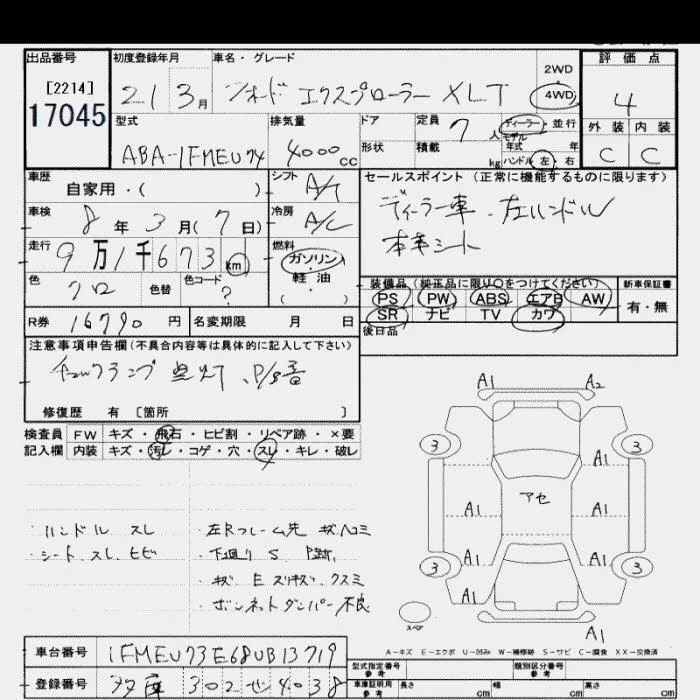 出品番号 初度登録年月 車名・グレード 評価点
[2214]
17045
21 3月 フォード エクスプローラー XLT 2WD 4WD 4
型式 排気量 ドア 定員 7人 ディーラー・並行 モデル 外装 内装
ABA-1FMEU74 4000cc 形状 積載 kg 年式 年 ハンドル 左・右 C C
車歴 自家用・( ) シフト A/T
セールスポイント(正常に機能するものに限ります)
車検 8年3月(7日) 冷房 A/C
ディーラー車、左ハンドル
本革シート
走行 9万1千673km 燃料 ガソリン・軽油・( )
色 クロ 色替 色コード ?
装備品(純正品に限り○をつけてください) 新車保証書
PS PW ABS エアB AW 有・無
SR ナビ TV カワ
後日品
R券 16790円 名変期限 月 日
注意事項申告欄(不具合内容等は具体的に記入して下さい)
点灯、P/S音
修復歴 有 [箇所 ]
検査員 FW キズ・飛石・ヒビ割・リペア跡・×要
記入欄 内装 キズ・汚レ・コゲ・穴・スレ・キレ・破レ
・ハンドル スレ
・シート スレ、ヒビ
・左Rフレーム先 キズ、ヘコミ
・下廻り S P跡
・キズ E スリキズ、クスミ
・ボンネットダンパー不良
A1 A2
3 3
A1
アセ
A1 A1
A1 A1
3 3
A1
A1
スペア
A-キズ E-エクボ U-凹み W-補修跡 S-サビ C-腐食 XX-交換済
車台番号 1FMEU73E68UB13719
型式指定番号 参考 類別区分番号 参考
登録番号 302 せ 4038
車庫証明用 参考 長さ cm 幅 cm 高さ cm